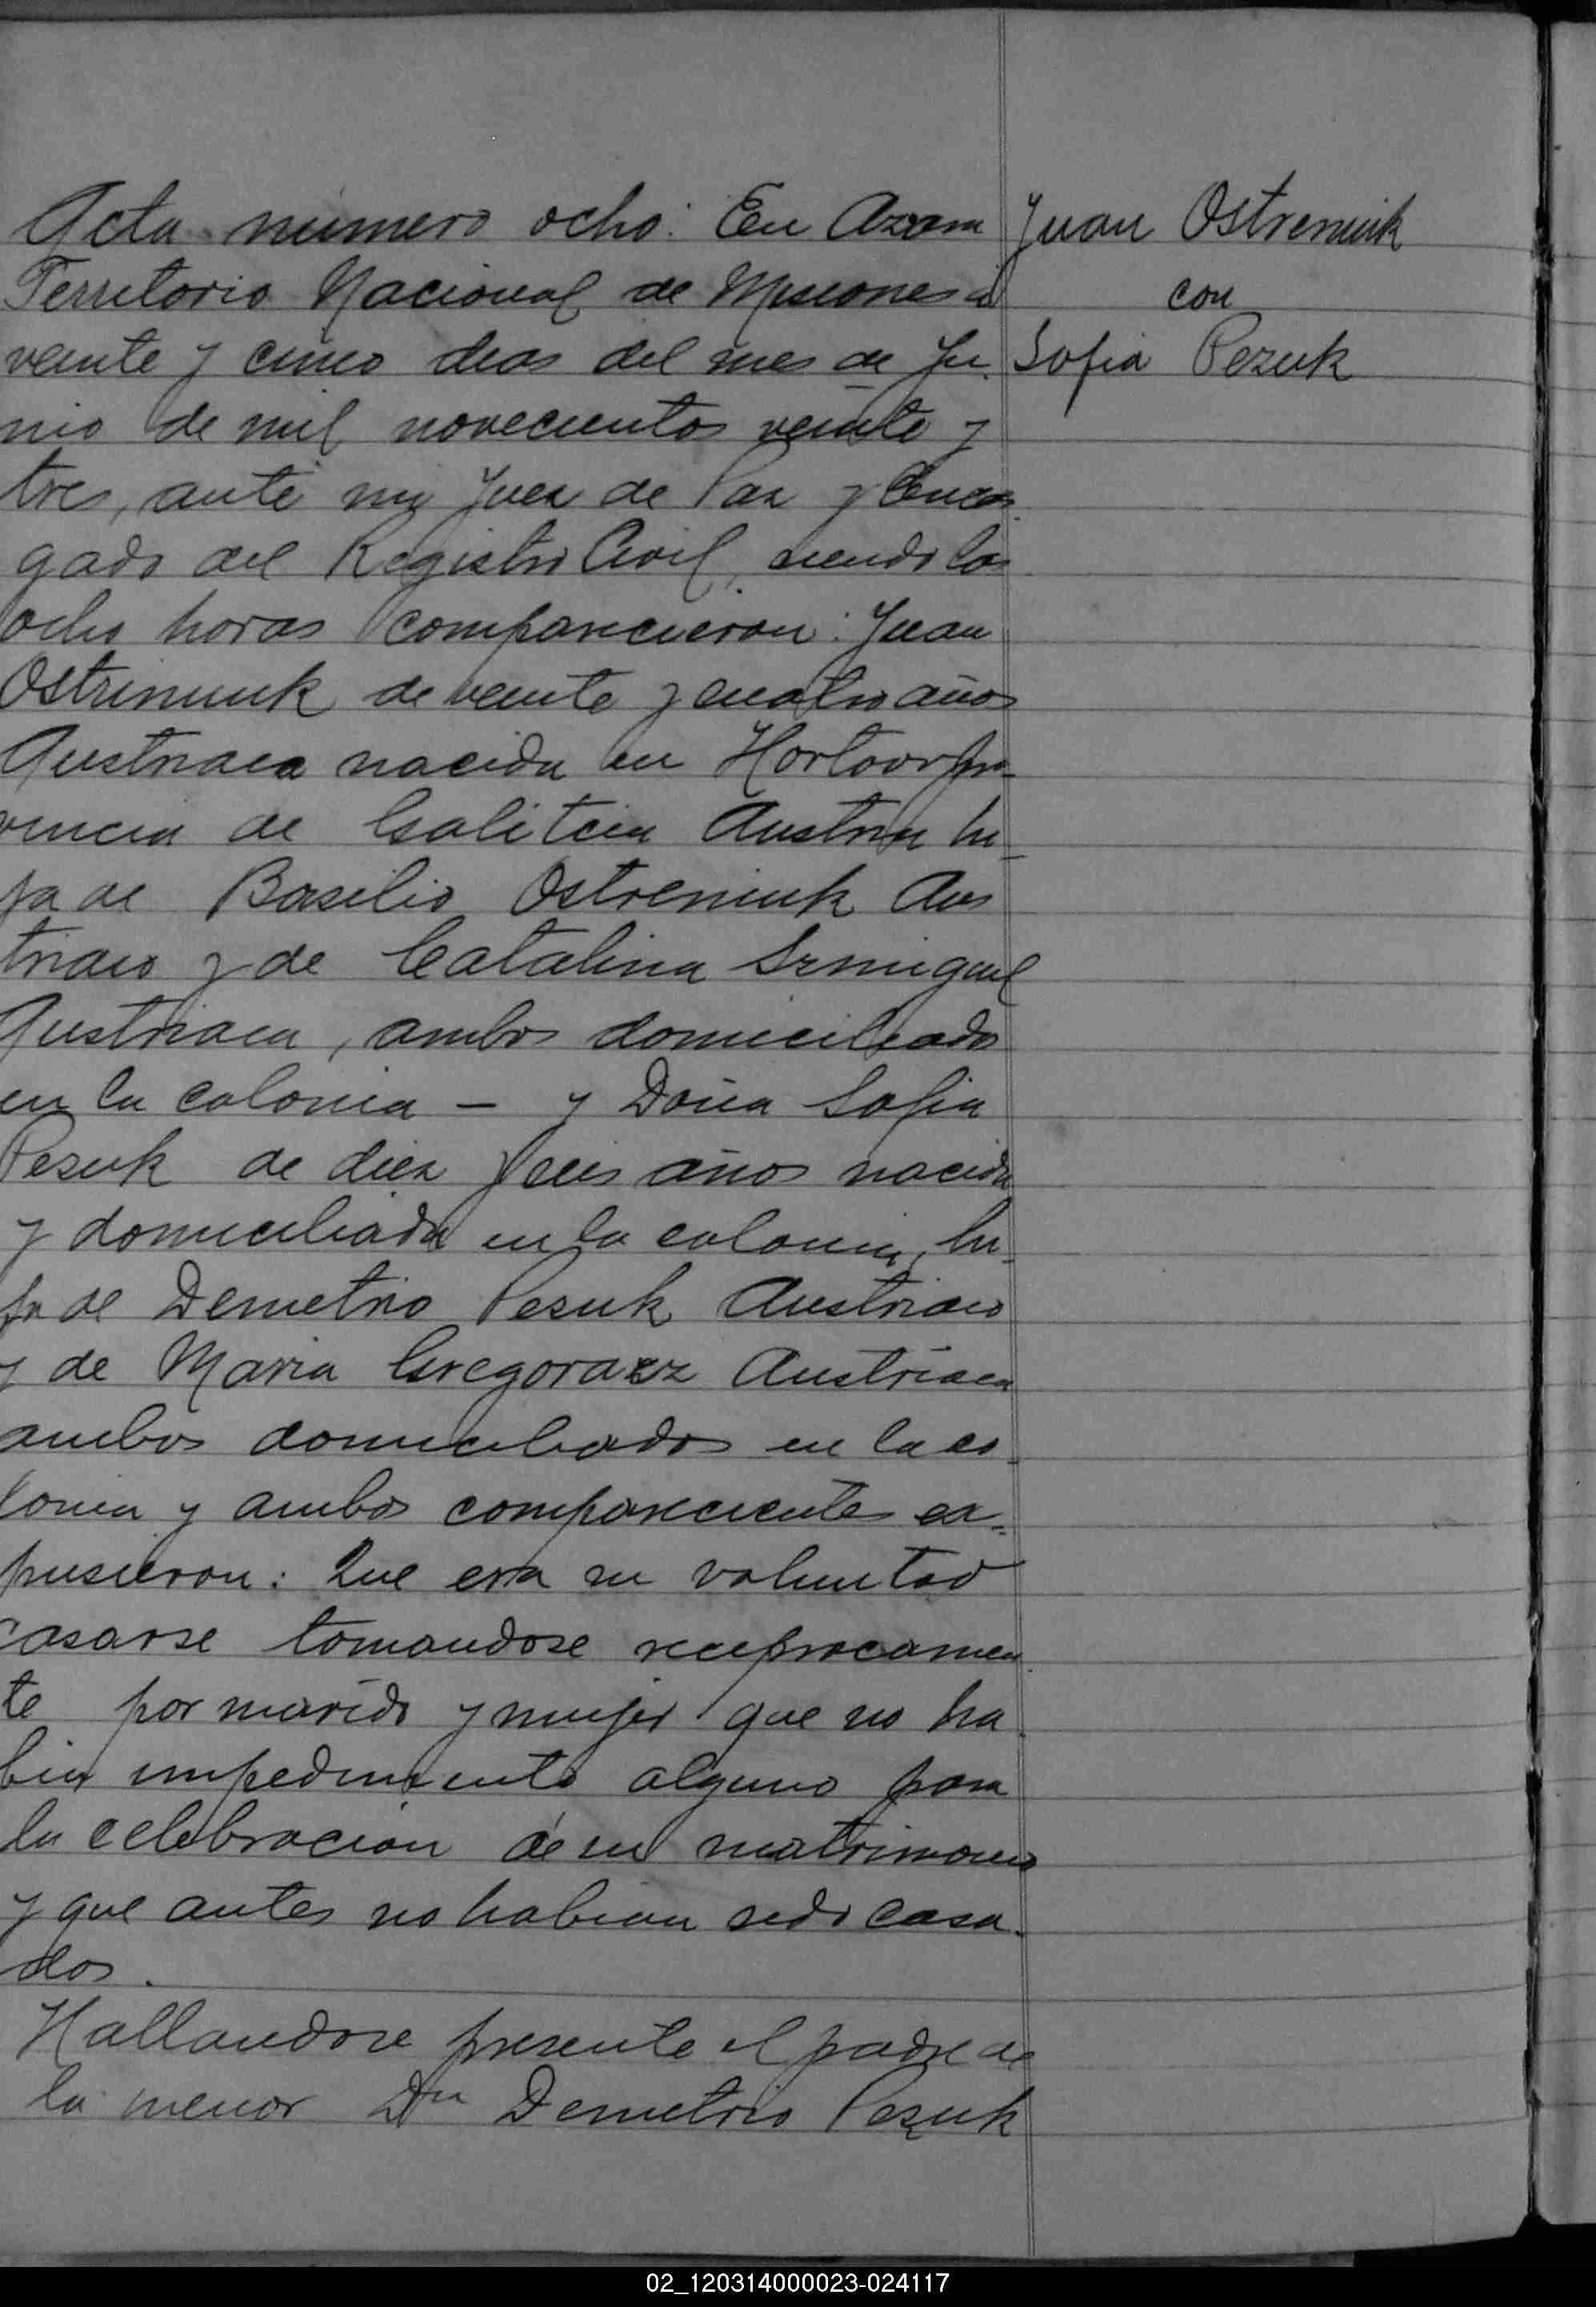 Acta número ocho: En Azara
Territorio Nacional de Misiones á
veinte y cinco dias del mes de Ju
nio de mil novecientos veinte y
tres, ante mi Juez de Paz y Encar
gado del Registro Civil, siendo las
ocho horas comparecieron: Juan
Ostreniuk de veinte y cuatro años
Austriaca nacida en pro
vincia de Galitcia Austria hi
ja de Basilio Ostreniuk Aus
triaco y de Catalina
Austriaca, ambos domiciliados
en la colonia – y Doña Sofia
Pezuk de diez y seis años nacida
y domiciliada en la colonia, hi
ja de Demetrio Pezuk Austriaco
y de Maria Gregorazz Austriaca
ambos domiciliados en la co
lonia y ambos comparecientes ex-
pusieron: Que era su voluntad
casarse tomandose reciprocamen
te por marido y mujer que no ha
bia impedimento alguno para
la celebracion de su matrimonio
y que antes no habian sido casa
dos.
Hallandose presente el padre de
la menor Dn Demetrio Pezuk
Juan Ostreniuk
con
Sofia Pezuk
02_120314000023-024117